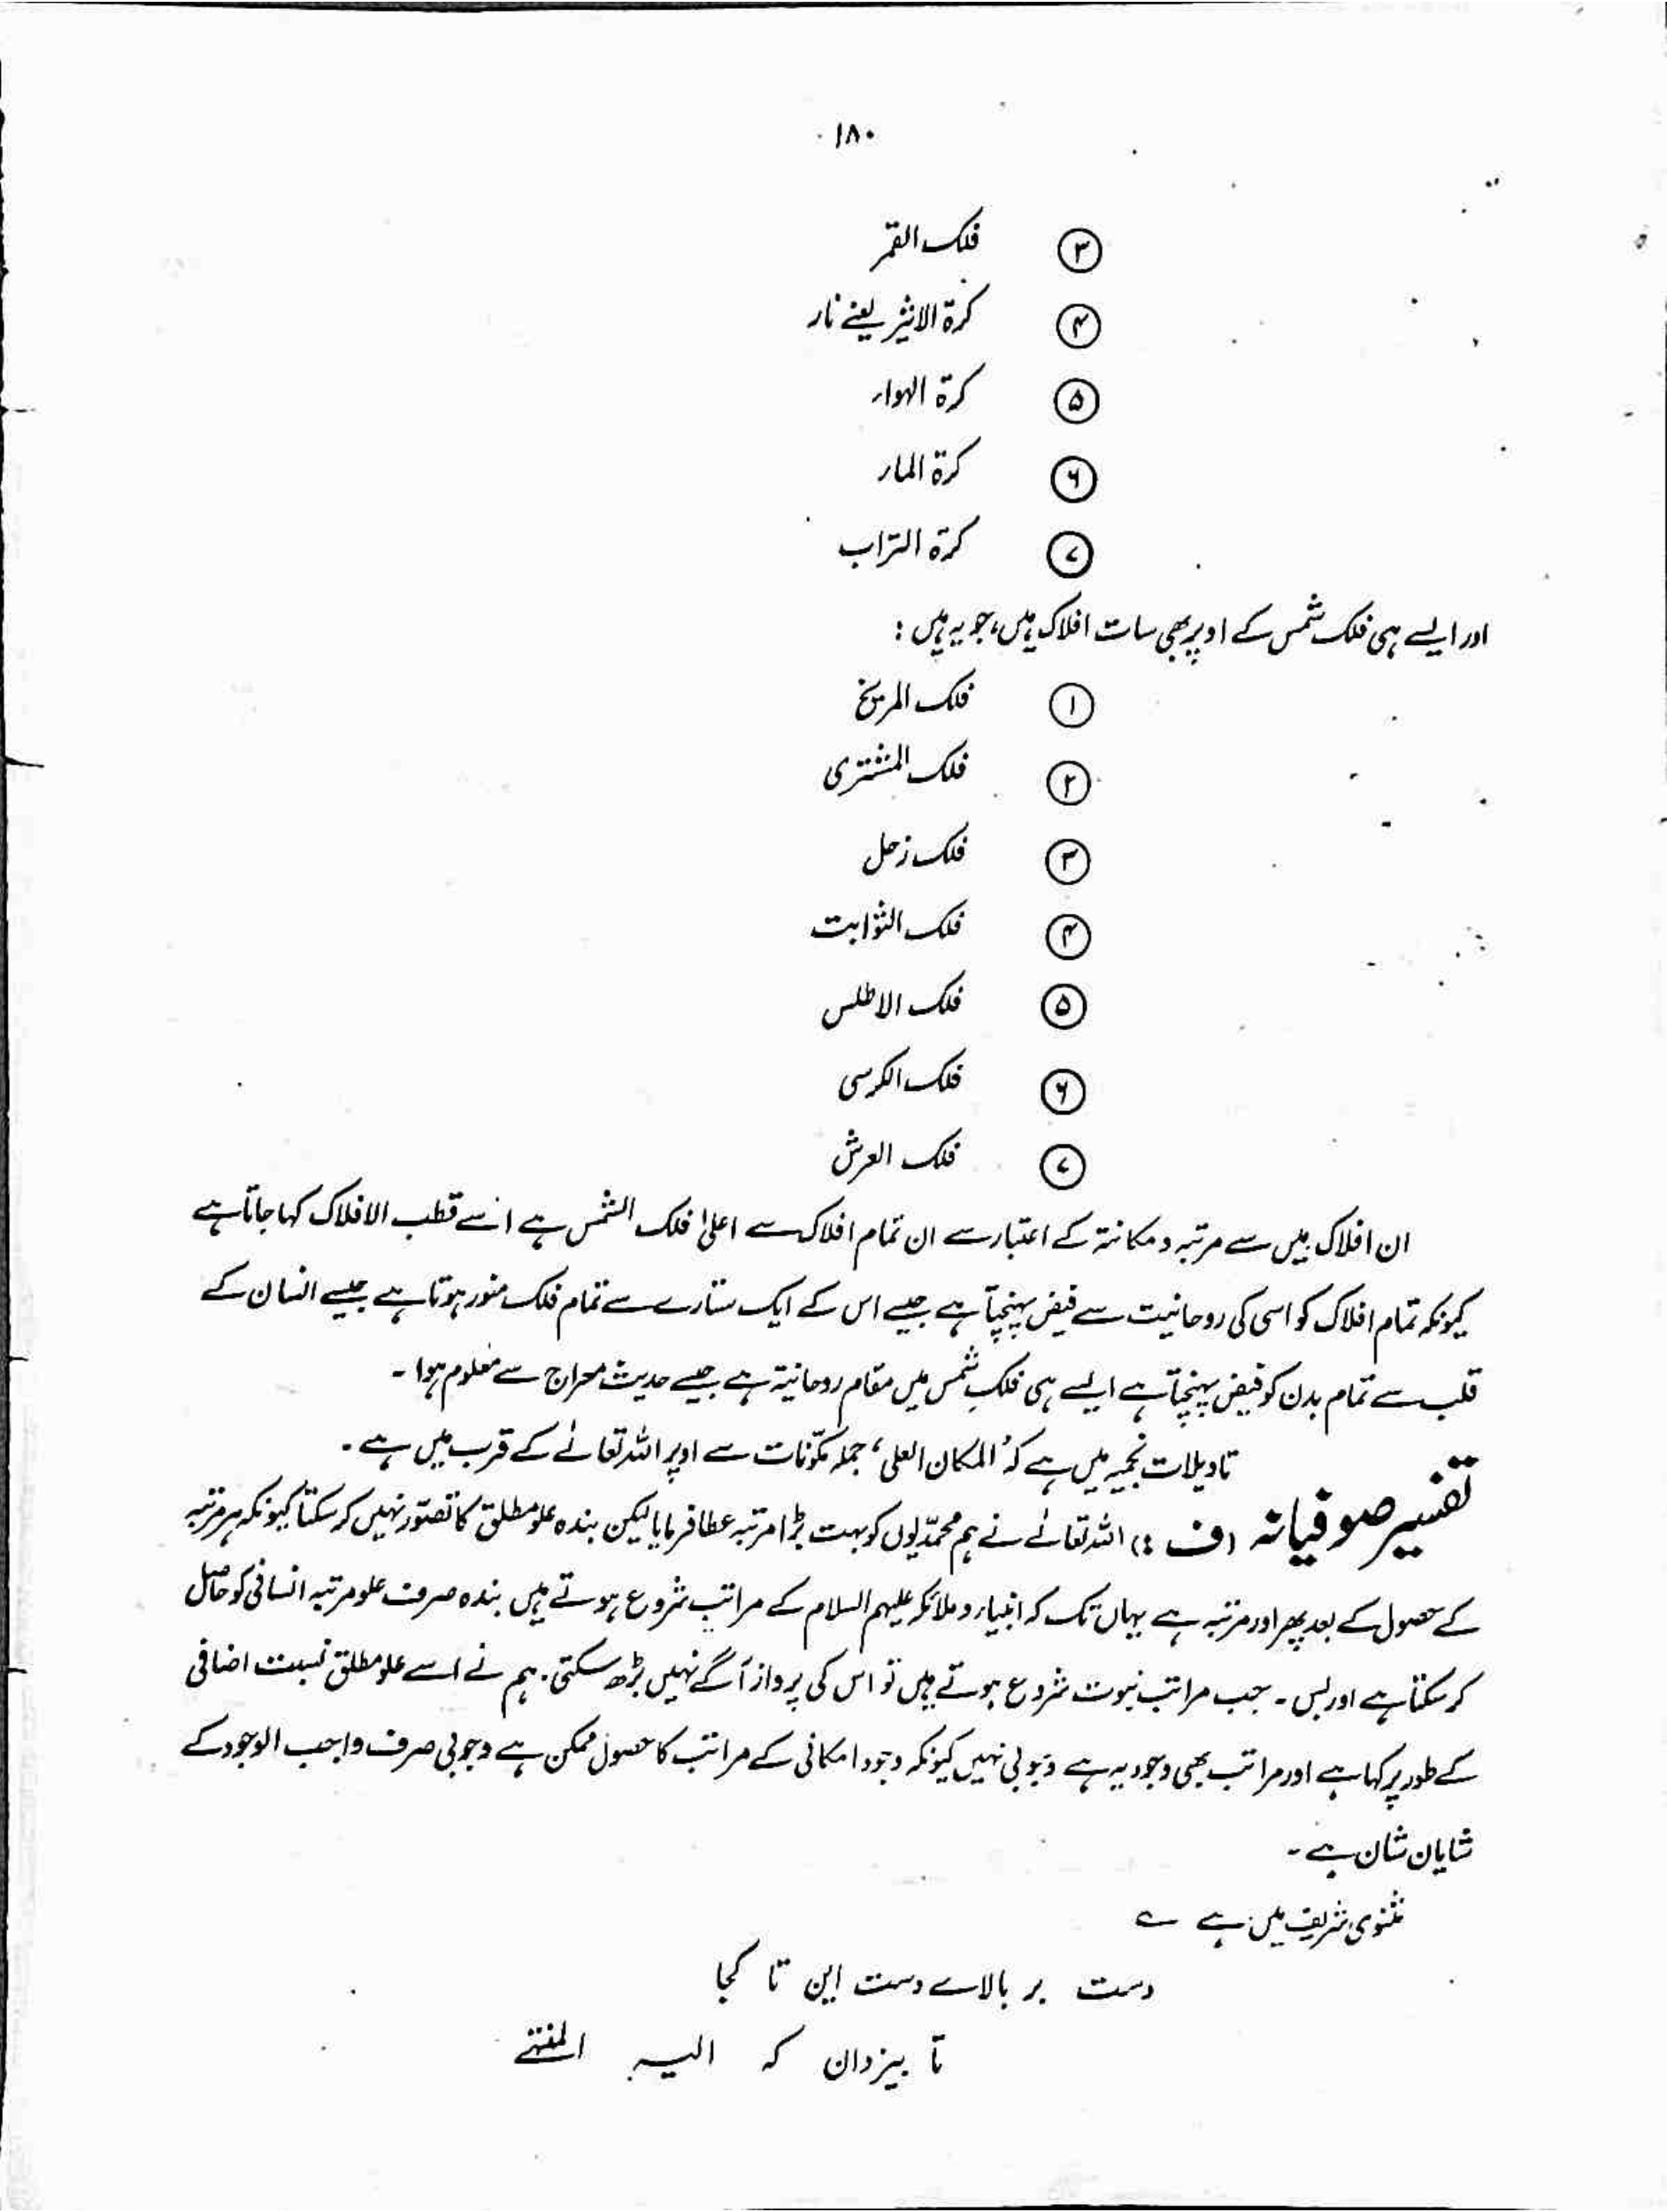 ۱۸۰
۳ فلک القمر
۴ کرۃ الاثیر یعنے نار
۵ کرۃ الہواء
۶ کرۃ الماء
۷ کرۃ التراب
اور ایسے ہی فلک شمس کے اوپر بھی سات افلاک ہیں، جو یہ ہیں :
۱ فلک المریخ
۲ فلک المشتری
۳ فلک زحل
۴ فلک الثوابت
۵ فلک الاطلس
۶ فلک الکرسی
۷ فلک العرش
ان افلاک میں سے مرتبہ و مکانتہ کے اعتبار سے ان تمام افلاک سے اعلیٰ فلک الشمس ہے اسے قطب الافلاک کہا جاتا ہے
کیونکہ تمام افلاک کو اسی کی روحانیت سے فیض پہنچتا ہے جیسے اس کے ایک ستارے سے تمام فلک منور ہوتا ہے جیسے انسان کے
قلب سے تمام بدن کو فیض پہنچتا ہے ایسے ہی فلک شمس میں مقام روحانیۃ ہے جیسے حدیث معراج سے معلوم ہوا ۔
تاویلات نجمیہ میں ہے کہ ُ المکان العلی ، جملہ مکوّنات سے اوپر اللہ تعالےٰ کے قرب میں ہے ۔
تفسیر صوفیانہ (ف :) اللہ تعالےٰ نے ہم محمدّیوں کو بہت بڑا مرتبہ عطا فرمایا لیکن بندہ علو مطلق کا تصوّر نہیں کر سکتا کیونکہ ہر مرتبہ
کے حصول کے بعد پھر اور مرتبہ ہے یہاں تک کہ انبیاء و ملائکہ علیہم السلام کے مراتب شروع ہوتے ہیں بندہ صرف علو مرتبہ انسانی کو حاصل
کر سکتا ہے اور بس ۔ جب مراتب نبوت شروع ہوتے ہیں تو اس کی پرواز آگے نہیں بڑھ سکتی ۔ ہم نے اسے علو مطلق نسبت اضافی
کے طور پر کہا ہے اور مراتب بھی وجودیہ ہے وجوبی نہیں کیونکہ وجود امکانی کے مراتب کا حصول ممکن ہے وجوبی صرف واجب الوجود کے
شایان شان ہے ۔
مثنوی شریف میں ہے ؎
دست بر بالاے دست این تا کجا
تا بیزدان کہ الیہ المنتہے